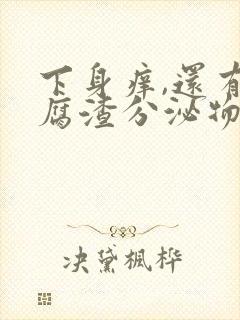 下身痒,還有
腐渣分泌物
决黛楓桦